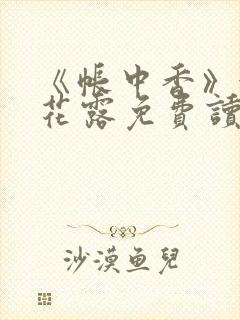 《帳中香》
花露免費讀
沙漠鱼兒